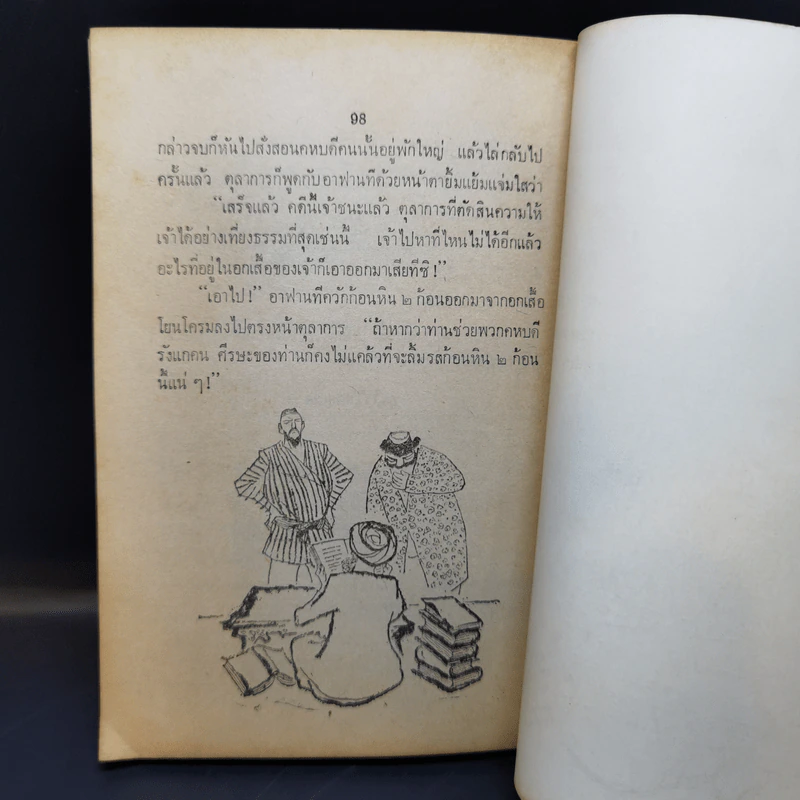 98
กล่าวจบก็หันไปสั่งสอนคหบดีคนนั้นอยู่พักใหญ่ แล้วไล่กลับไป
ครั้นแล้ว ตุลาการก็พูดกับอาฟานทีด้วยหน้าตายิ้มแย้มแจ่มใสว่า
“เสร็จแล้ว คดีนี้เจ้าชนะแล้ว ตุลาการที่ตัดสินความให้
เจ้าได้อย่างเที่ยงธรรมที่สุดเช่นนี้ เจ้าไปหาที่ไหนไม่ได้อีกแล้ว
อะไรที่อยู่ในอกเสื้อของเจ้าก็เอาออกมาเสียทีซิ!”
“เอาไป!” อาฟานทีควักก้อนหิน ๒ ก้อนออกมาจากอกเสื้อ
โยนโครมลงไปตรงหน้าตุลาการ “ถ้าหากว่าท่านช่วยพวกคหบดี
รังแกคน ศีรษะของท่านก็คงไม่แคล้วที่จะลิ้มรสก้อนหิน ๒ ก้อน
นี้แน่ ๆ!”